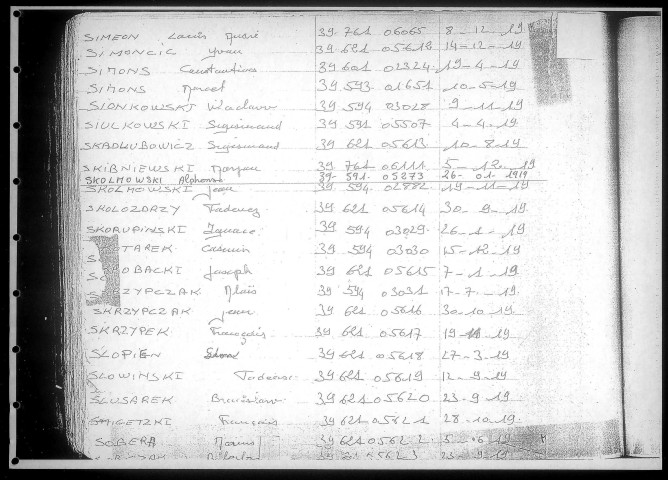 SIMEON Louis André 39 761 06065 8-12-19
SIMONCIC Yvan 39 621 05612 14-12-19
SIMONS Constantino 39 601 02324 19-4-19
SIMONS Marcel 39 593 01651 10-5-19
SIONKOWSKI Vlaclaw 39 594 03028 9-11-19
SIULKOWSKI Sigismund 39 591 05507 4-4-19
SKADLUBOWICZ Sigismund 39 621 05613 10-8-19
SKIBNIEWSKI Marjan 39 761 06111 5-12-19
SKOLMOWSKI Alphonse 39-591-05273 26-01-1919
SKOLMOWSKI Jean 39 594 02882 19-11-19
SKOLOZDRZY Tadeusz 39 621 05614 30-9-19
SKORUPINSKI Ignace 39 594 03029 26-1-19
TAREK Casimir 39 594 03030 15-12-19
OBACKI Joseph 39 621 05615 7-1-19
RZYPCZAK Aloïs 39 594 03031 17-7-19
SKRZYPCZAK Jean 39 621 05616 30-10-19
SKRZYPEK François 39 621 05617 19-11-19
SLOPIEN 39 621 05618 27-3-19
SLOWINSKI Tadeusz 39 621 05619 12-9-19
SLUSAREK Bronislaw 39 621 05620 23-9-19
SMIGETZKI François 39 621 05621 28-10-19
SOBERA Marius 39 621 05622 5-06-19
05623 23-9-19